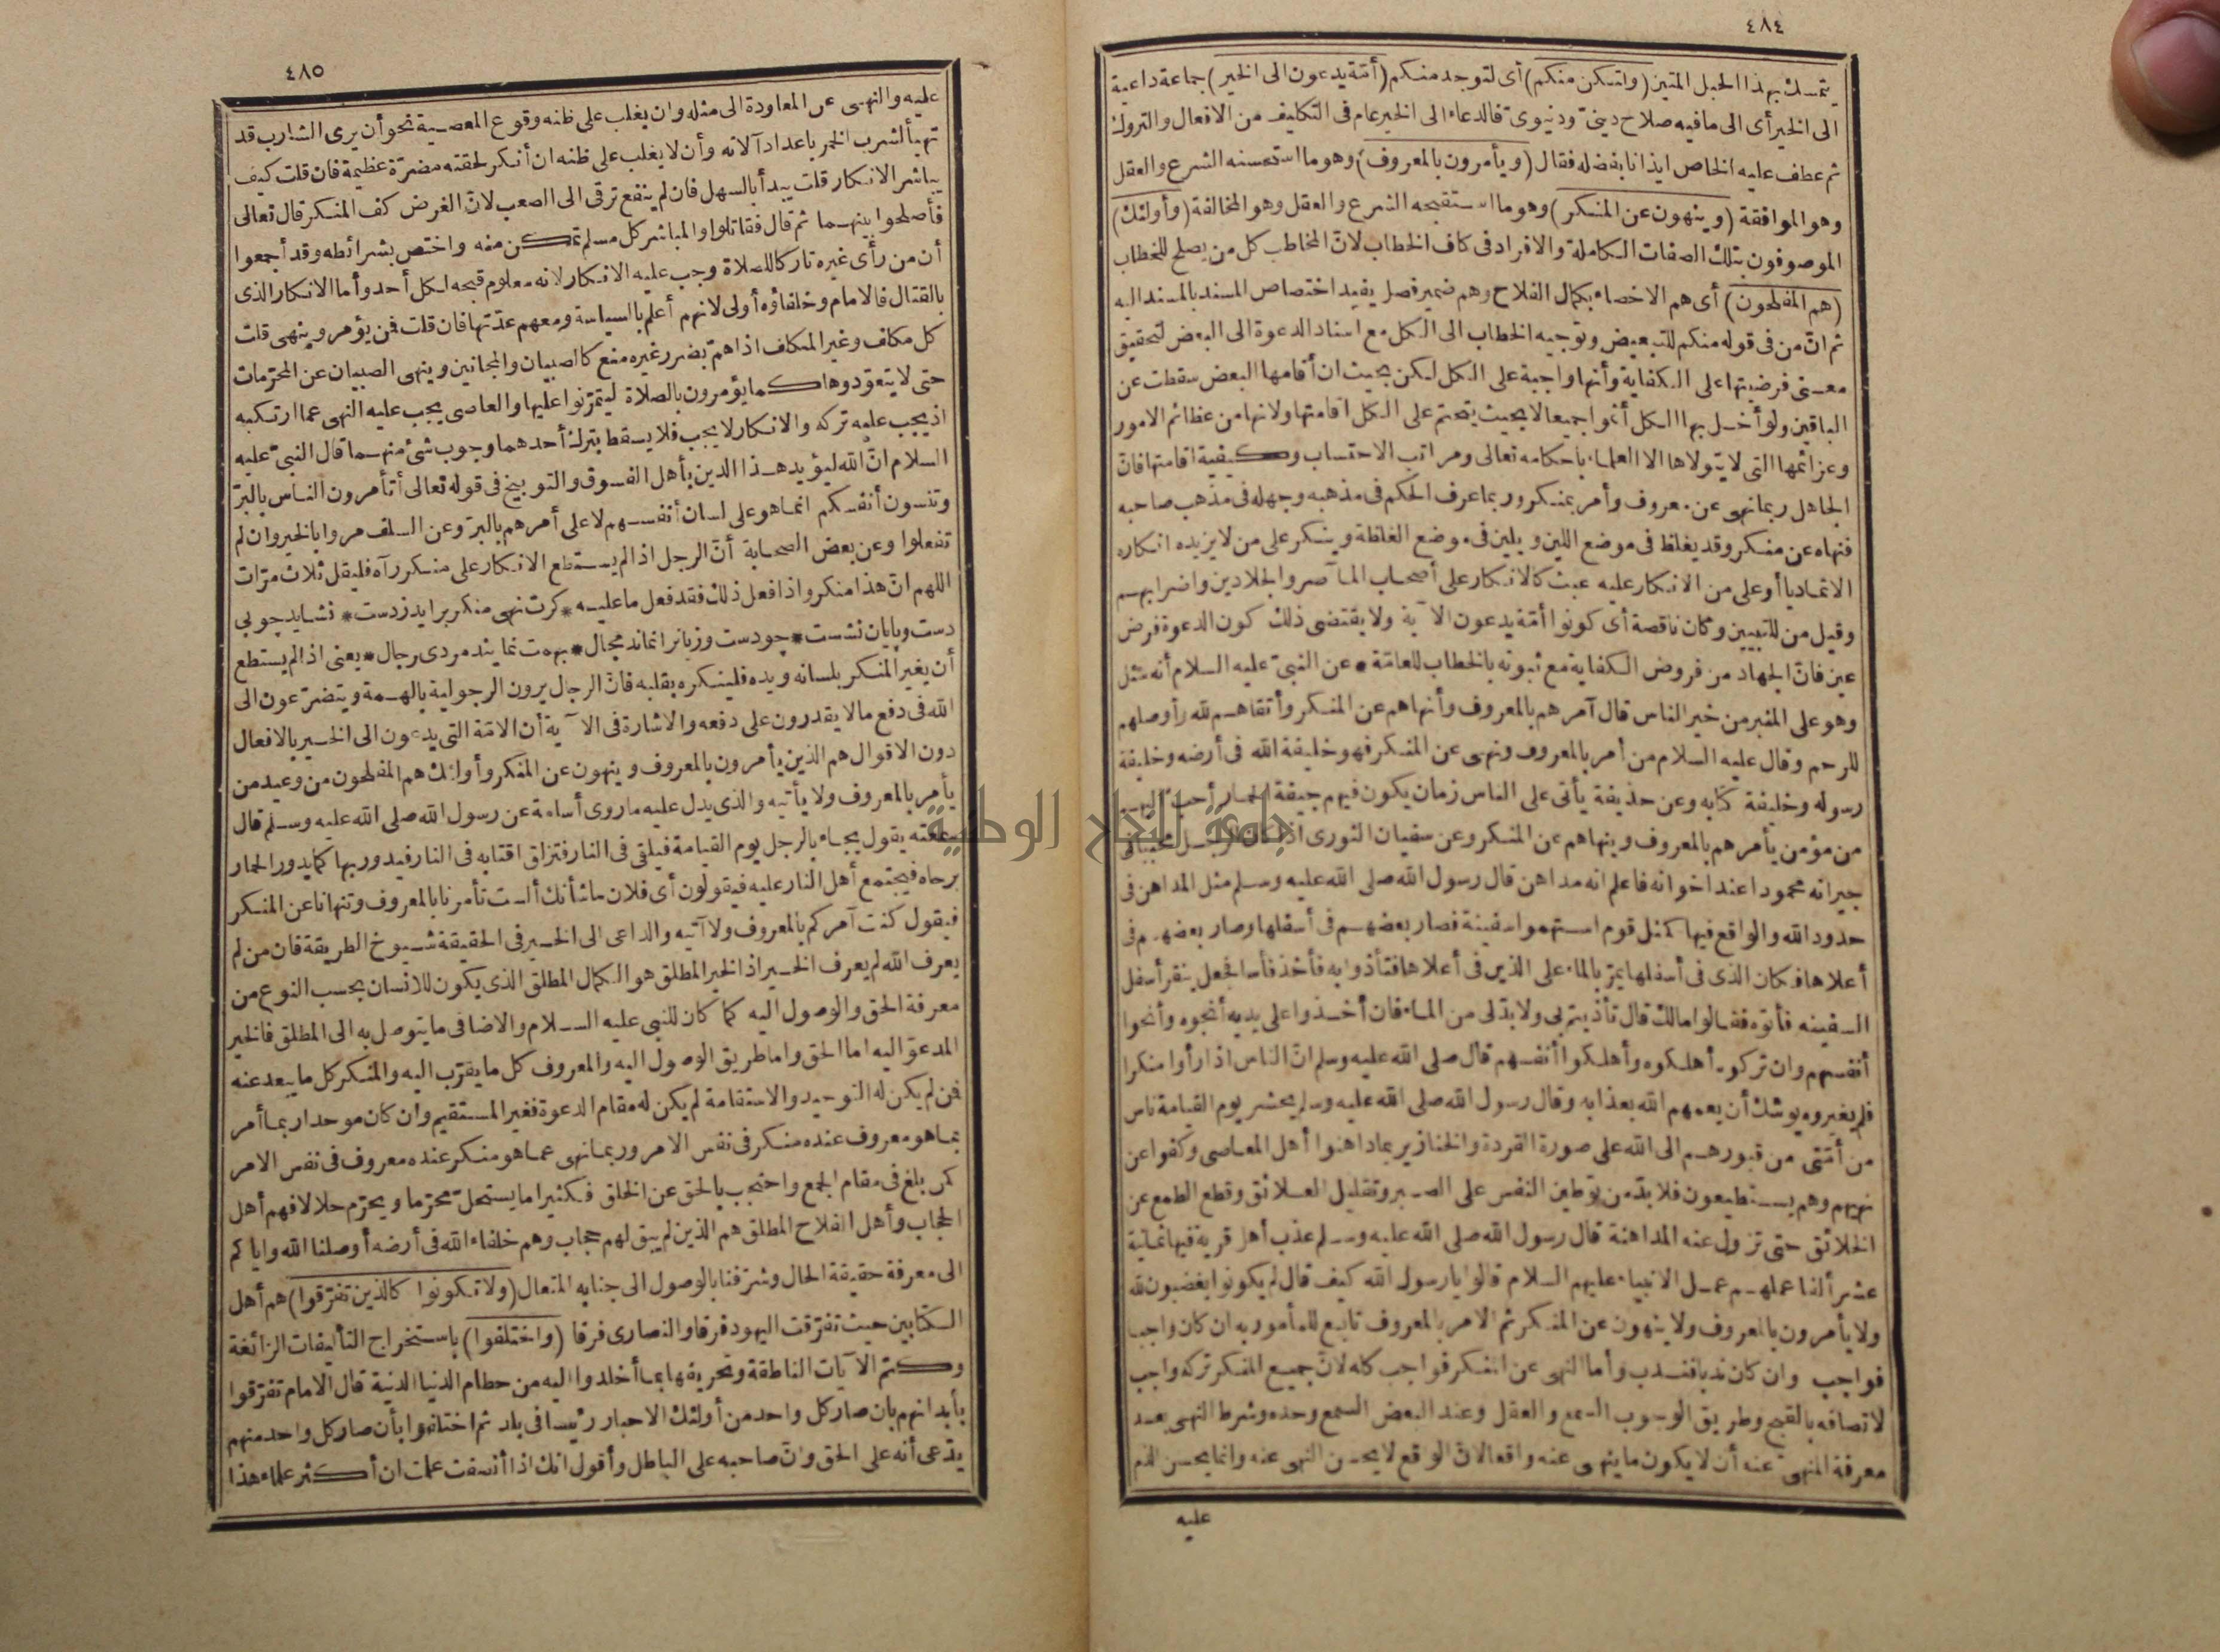 ٤٨٤
يتمسك بهذا الحبل المتين (ولتكن منكم) أى لتوجد منكم (أمّة يدعون الى الخير) جماعة داعية
الى الخير أى الى ما فيه صلاح دينىّ ودنيوىّ فالدعاء الى الخير عام فى التكاليف من الافعال والتروك
ثم عطف عليه الخاص ايذانا بفضله فقال (ويأمرون بالمعروف) وهو ما استحسنه الشرع والعقل
وهو الموافقة (وينهون عن المنكر) وهو ما استقبحه الشرع والعقل وهو المخالفة (وأولئك)
الموصوفون بتلك الصفات الكاملة والافراد فى كاف الخطاب لانّ المخاطب كل من يصلح للخطاب
(هم المفلحون) أى هم الاخصاء بكمال الفلاح وهم ضمير فصل يفيد اختصاص المسند بالمسند اليه
ثم انّ من فى قوله منكم للتبعيض وتوجيه الخطاب الى الكل مع اسناد الدعوة الى البعض لتحقيق
معنى فرضيتها على الكفاية وأنها واجبة على الكل لكن بحيث ان أقامها البعض سقطت عن
الباقين ولو أخل بها الكل أثموا جميعا لا بحيث يتحتم على الكل اقامتها ولانها من عظائم الامور
وعزائمها التى لا يتولاها الا العلماء باحكامه تعالى ومراتب الاحتساب وكيفية اقامتها فانّ
الجاهل ربما نهى عن معروف وأمر بمنكر وربما عرف الحكم فى مذهبه وجهله فى مذهب صاحبه
فنهاه عن منكر وقد يغلظ فى موضع اللين ويلين فى موضع الغلظة وينكر على من لا يزيده انكاره
الا تماديا أو على من الانكار عليه عبث كالانكار على أصحاب المآصر والجلادين واضرابهم
وقيل من للتبيين وكان ناقصة أى كونوا أمّة يدعون الآية ولا يقتضى ذلك كون الدعوة فرض
عين فانّ الجهاد من فروض الكفاية مع ثبوته بالخطاب للعامّة * عن النبىّ عليه السلام أنه سئل
وهو على المنبر من خير الناس قال آمرهم بالمعروف وأنهاهم عن المنكر وأتقاهم لله وأوصلهم
للرحم وقال عليه السلام من أمر بالمعروف ونهى عن المنكر فهو خليفة الله فى أرضه وخليفة
رسوله وخليفة كتابه وعن حذيفة يأتى على الناس زمان يكون فيهم جيفة الحمار أحب اليهم
من مؤمن يأمرهم بالمعروف وينهاهم عن المنكر وعن سفيان الثورى اذا كان الرجل محببا فى
جيرانه محمودا عند اخوانه فاعلم انه مداهن قال رسول الله صلى الله عليه وسلم مثل المداهن فى
حدود الله والواقع فيها كمثل قوم استهموا سفينة فصار بعضهم فى أسفلها وصار بعضهم فى
أعلاها فكان الذى فى أسفلها يمرّ بالماء على الذين فى أعلاها فتأذوا به فأخذ فأسا فجعل ينقر أسفل
السفينه فأتوه فقالوا مالك قال تأذيتم بى ولا بدّ لى من الماء فان أخذوا على يديه أنجوه وأنجوا
أنفسهم وان تركوه أهلكوه وأهلكوا أنفسهم قال صلى الله عليه وسلم انّ الناس اذا رأوا منكرا
فلم يغيروه يوشك أن يعمهم الله بعذابه وقال رسول الله صلى الله عليه وسلم يحشر يوم القيامة ناس
من أمّتى من قبورهم الى الله على صورة القردة والخنازير بما داهنوا أهل المعاصى وكفوا عن
نهيهم وهم يستطيعون فلا بدّ من توطين النفس على الصبر وتقليل العلائق وقطع الطمع عن
الخلائق حتى تزول عنه المداهنة قال رسول الله صلى الله عليه وسلم عذب أهل قرية فيها ثمانية
عشر ألفا عملهم عمل الانبياء عليهم السلام قالوا يا رسول الله كيف قال لم يكونوا يغضبون لله
ولا يأمرون بالمعروف ولا ينهون عن المنكر ثم الامر بالمعروف تابع للمأمور به ان كان واجبا
فواجب وان كان ندبا فندب وأما النهى عن المنكر فواجب كله لانّ جميع المنكر تركه واجب
لاتصافه بالقبح وطريق الوجوب السمع والعقل وعند البعض السمع وحده وشرط النهى بعد
معرفة المنهىّ عنه أن لا يكون ما ينهى عنه واقعا لانّ الواقع لا يحسن النهى عنه وانما يحسن الذم
عليه
٤٨٥
عليه والنهى عن المعاودة الى مثله وان يغلب على ظنه وقوع المعصية نحو أن يرى الشارب قد
تهيأ لشرب الخمر باعداد آلاته وأن لا يغلب على ظنه ان أنكر لحقته مضرّة عظيمة فان قلت كيف
يباشر الانكار قلت يبدأ بالسهل فان لم ينفع ترقى الى الصعب لانّ الغرض كف المنكر قال تعالى
فأصلحوا بينهما ثم قال فقاتلوا والمباشر كل مسلم تمكن منه واختص بشرائطه وقد أجمعوا
أن من رأى غيره تاركا للصلاة وجب عليه الانكار لانه معلوم قبحه لكل أحد وأما الانكار الذى
بالقتال فالامام وخلفاؤه أولى لانهم أعلم بالسياسة ومعهم عدّتها فان قلت فمن يؤمر وينهى قلت
كل مكلف وغير المكلف اذا همّ بضرر غيره منع كالصبيان والمجانين وينهى الصبيان عن المحرّمات
حتى لا يتعوّدوها كما يؤمرون بالصلاة ليتمرّنوا عليها والعاصى يجب عليه النهى عما ارتكبه
اذ يجب عليه تركه والانكار لا يجب فلا يسقط بترك أحدهما وجوب شئ منهما قال النبىّ عليه
السلام انّ الله ليؤيد هذا الدين بأهل الفسوق والتوبيخ فى قوله تعالى أتأمرون الناس بالبرّ
وتنسون أنفسكم انما هو على لسان أنفسهم لا على أمرهم بالبرّ وعن السلف مروا بالخير وان لم
تفعلوا وعن بعض الصحابة أنّ الرجل اذا لم يستطع الانكار على منكر رآه فليقل ثلاث مرّات
اللهم انّ هذا منكر واذا فعل ذلك فقد فعل ما عليه * كرت نهى منكر برايد زدست * نشايد چو بى
دست وپايان نشست * چو دست وزبانرا نماند مجال * بهمت نمايند مردى رجال * يعنى اذا لم يستطع
أن يغير المنكر بلسانه ويده فلينكره بقلبه فانّ الرجال يرون الرجولية بالهمة ويتضرّعون الى
الله فى دفع ما لا يقدرون على دفعه والاشارة فى الآية أن الامّة التى يدعون الى الخير بالافعال
دون الاقوال هم الذين يأمرون بالمعروف وينهون عن المنكر وأولئك هم المفلحون من وعيد من
يأمر بالمعروف ولا يأتيه والذى يدل عليه ما روى أسامة عن رسول الله صلى الله عليه وسلم قال
سمعته يقول يجاء بالرجل يوم القيامة فيلقى فى النار فتنزلق اقتابه فى النار فيدور بها كما يدور الحمار
برحاه فيجتمع أهل النار عليه فيقولون أى فلان ما شأنك ألست تأمرنا بالمعروف وتنهانا عن المنكر
فيقول كنت آمركم بالمعروف ولا آتيه والداعى الى الخير فى الحقيقة شيوخ الطريقة فان من لم
يعرف الله لم يعرف الخير اذ الخير المطلق هو الكمال المطلق الذى يكون للانسان بحسب النوع من
معرفة الحق والوصول اليه كما كان للنبى عليه السلام والاضافى ما يتوصل به الى المطلق فالخير
المدعوّ اليه اما الحق واما طريق الوصول اليه والمعروف كل ما يقرّب اليه والمنكر كل ما يبعد عنه
فمن لم يكن له التوحيد والاستقامة لم يكن له مقام الدعوة فغير المستقيم وان كان موحدا ربما أمر
بما هو معروف عنده منكر فى نفس الامر وربما نهى عما هو منكر عنده معروف فى نفس الامر
كمن بلغ فى مقام الجمع واحتجب بالحق عن الخلق فكثيرا ما يستحلّ محرّما ويحرّم حلالا فهم أهل
الحجاب وأهل الفلاح المطلق هم الذين لم يبق لهم حجاب وهم خلفاء الله فى أرضه أوصلنا الله واياكم
الى معرفة حقيقة الحال وشرّفنا بالوصول الى جنابه المتعال (ولا تكونوا كالذين تفرّقوا) هم أهل
الكتابين حيث تفرّقت اليهود فرقا والنصارى فرقا (واختلفوا) باستخراج التأليفات الزائغة
وكتم الآيات الناطقة وتحريفها بما أخلدوا اليه من حطام الدنيا الدنية قال الامام تفرّقوا
بأبدانهم بان صار كل واحد من أولئك الاحبار رئيسا فى بلد ثم اختلفوا بأن صار كل واحد منهم
يدّعى أنه على الحق وانّ صاحبه على الباطل وأقول انك اذا أنصفت علمت ان أكثر علماء هذا
جامعة النجاح الوطنية